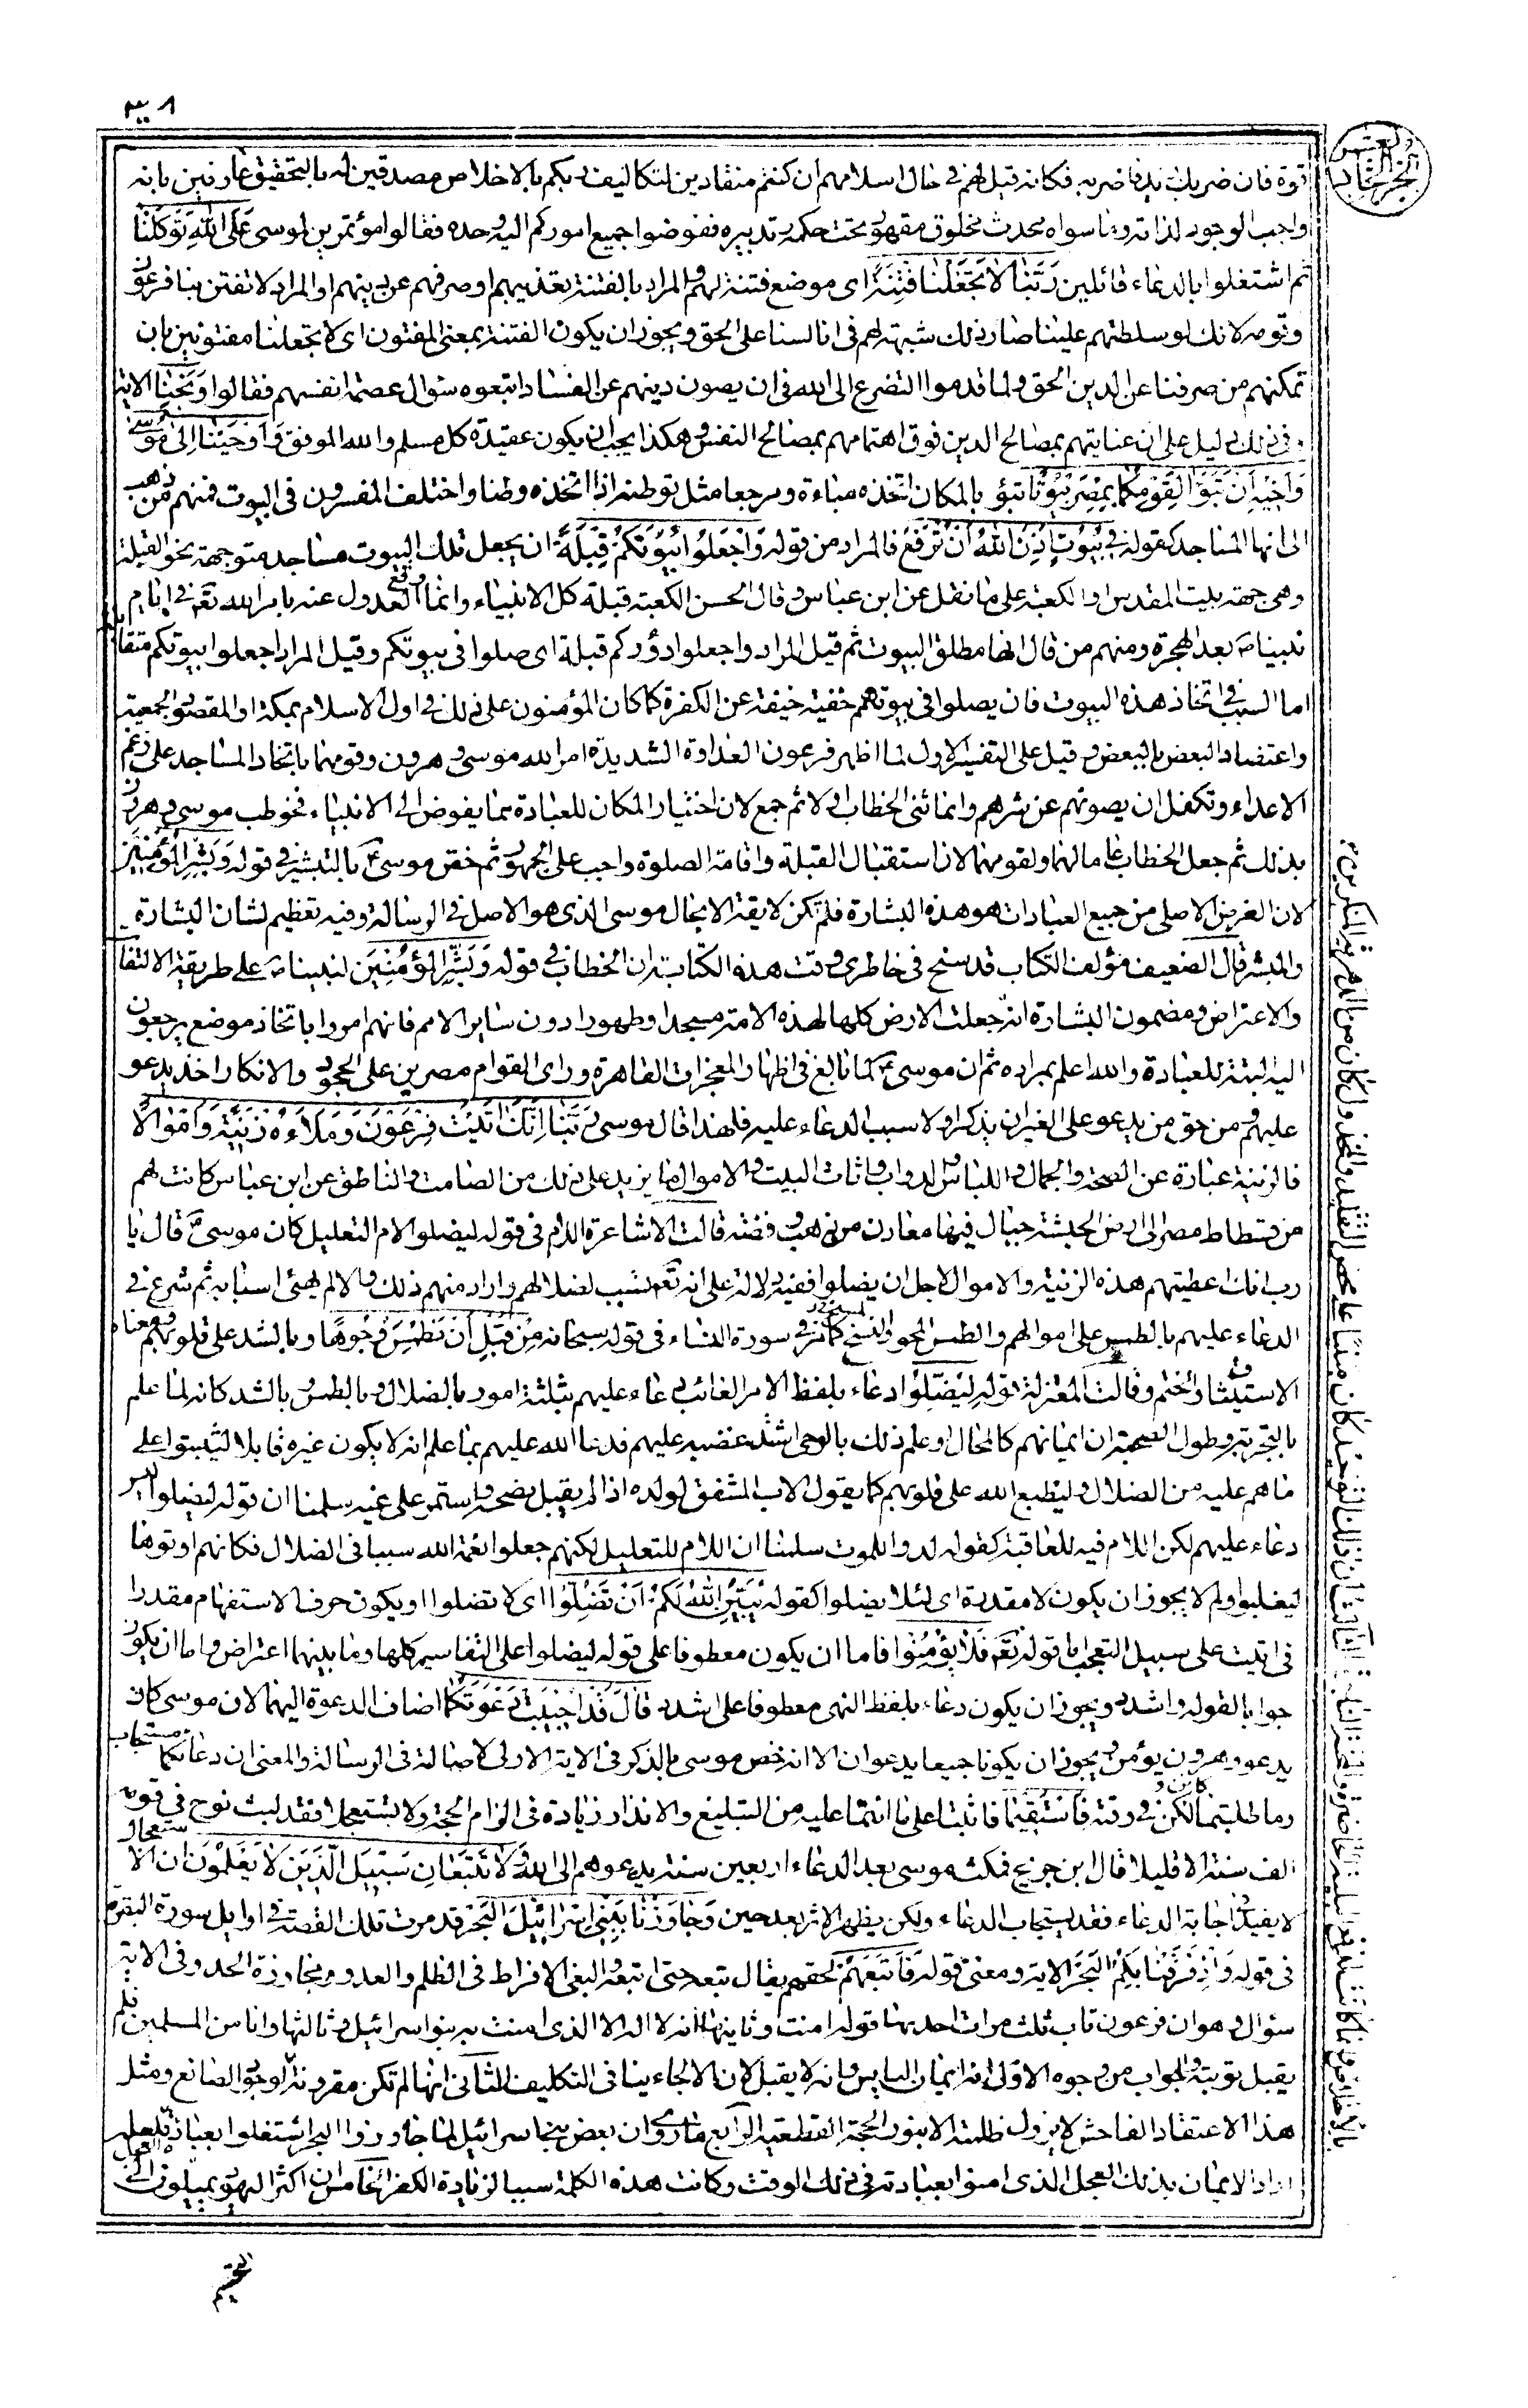 ٣٠٨
الجزء الحادي عشر
قوة فان ضربك زيد فاضربه فكانه قيل لهم في حال اسلامهم ان كنتم منقادين لتكاليف ربكم بالاخلاص مصدقين له بالتحقيق عارفين بانه
واجب الوجود لذاته وما سواه محدث مخلوق مقهور تحت حكمه وتدبيره ففوضوا جميع اموركم اليه وحده فقالوا مؤتمرين لموسى عَلَى اللهِ تَوَكَّلْنَا
ثم اشتغلوا بالدعاء قائلين رَبَّنَا لَا تَجْعَلْنَا فِتْنَةً اى موضع فتنة لهم والمراد بالفتنة تعذيبهم او صرفهم عن دينهم او المراد لا تفتن بنا فرعون
وقومه لانك لو سلطتهم علينا صار ذلك شبهة لهم فى انا لسنا على الحق ويجوز ان يكون الفتنة بمعنى المفتون اى لا تجعلنا مفتونين بان
تمكنهم من صرفنا عن الدين الحق ولما قدموا التضرع الى الله فى ان يصون دينهم عن الفساد اتبعوه سؤال عصمة انفسهم فقالوا وَنَجِّنَا الاية
وفى ذلك دليل على ان عنايتهم بمصالح الدين فوق اهتمامهم بمصالح النفس وهكذا يجب ان يكون عقيدة كل مسلم والله الموفق وَأَوْحَيْنَا إِلَى مُوسَى
وَأَخِيهِ أَنْ تَبَوَّآ لِقَوْمِكُمَا بِمِصْرَ بُيُوتًا تبوّء بالمكان اتخذه مباءة ومرجعا مثل توطنه اذا اتخذه وطنا واختلف المفسرون فى البيوت فمنهم من ذهب
الى انها المساجد كقوله فِي بُيُوتٍ أَذِنَ اللهُ أَنْ تُرْفَعَ فالمراد من قوله وَاجْعَلُوا بُيُوتَكُمْ قِبْلَةً ان يجعل تلك البيوت مساجد متوجهة نحو القبلة
وهى جهة بيت المقدس او الكعبة على ما نقل عن ابن عباس وقال الحسن الكعبة قبلة كل الانبياء وانما وقع العدول عنه بامر الله تعم فى ايام
نبينا ص بعد الهجرة ومنهم من قال انها مطلق البيوت ثم قيل المراد واجعلوا دوركم قبلة اى صلوا فى بيوتكم وقيل المراد اجعلوا بيوتكم متقابلة
اما السبب فى اتخاذ هذه البيوت فان يصلوا فى بيوتهم خفية خيفة عن الكفرة كما كان المؤمنون على ذلك فى اول الاسلام بمكة او المقصود الجمعية
واعتضاد البعض بالبعض وقيل على التفسير الاول لما اظهر فرعون العداوة الشديدة امر الله موسى وهرون وقومهما باتخاذ المساجد على رغم
الاعداء وتكفل ان يصونهم عن شرهم وانما ثنى الخطاب اولا ثم جمع لان اختيار المكان للعبادة مما يفوض الى الانبياء فخوطب موسى وهرون
بذلك ثم جعل الخطاب عاما لهما ولقومهما لان استقبال القبلة واقامة الصلوة واجب على الجمهور ثم خص موسى ع بالتبشير فى قوله وَبَشِّرِ الْمُؤْمِنِينَ
لان الغرض الاصلى من جميع العبادات هو هذه البشارة فلم تكن لايقة الا بحال موسى الذى هو الاصل فى الرسالة وفيه تعظيم لشان البشارة
والمبشر قال الضعيف مؤلف الكتاب قد سنح فى خاطرى وقت هذه الكتابة ان الخطاب فى قوله وَبَشِّرِ الْمُؤْمِنِينَ لنبينا ص على طريقة الالتفات
والاعتراض ومضمون البشارة انه جعلت الارض كلها لهذه الامة مسجدا وطهورا دون ساير الامم فانهم امروا باتخاذ موضع يرجعون
اليه البتة للعبادة والله اعلم بمراده ثم ان موسى ع لما بالغ فى اظهار المعجزات القاهرة وراى القوام مصرين على الجحود والانكار اخذ يدعو
عليهم ومن حق من يدعو على الغير ان يذكر اولا سبب الدعاء عليه فلهذا قال موسى رَبَّنَا إِنَّكَ آتَيْتَ فِرْعَوْنَ وَمَلَأَهُ زِينَةً وَأَمْوَالًا
فالزينة عبارة عن الصحة والجمال واللباس والدواب واثاث البيت والاموال ما يزيد على ذلك من الصامت والناطق عن ابن عباس كانت لهم
من فسطاط مصر الى ارض الحبشة جبال فيها معادن من ذهب وفضة قالت الاشاعرة اللام فى قوله ليضلوا لام التعليل كان موسى ع قال يا
رب انك اعطيتهم هذه الزينة والاموال لاجل ان يضلوا ففيه دلالة على انه تعم تسبب لضلالهم واراد منهم ذلك والا لم يهيئ اسبابه ثم شرع فى
الدعاء عليهم بالطمس على اموالهم والطمس المحو والمسخ كما مر فى سورة النساء فى قوله سبحانه مِنْ قَبْلِ أَنْ نَطْمِسَ وُجُوهًا وبالشد على قلوبهم ومعناه
الاستيثاق والختم وقالت المعتزلة قوله لِيُضِلُّوا دعاء بلفظ الامر الغائب دعاء عليهم بثلثة امور بالضلال وبالطمس وبالشد كانه لما علم
بالتجربة وطول الصحبة ان ايمانهم كالمحال او علم ذلك بالوحى اشتد غضبه عليهم فدعا الله عليهم بما علم انه لا يكون غيره قايلا ليثبتوا على
ما هم عليه من الضلال وليطبع الله على قلوبهم كما يقول الاب المشفق لولده اذا لم يقبل نصحه واستمر على غيه سلمنا ان قوله ليضلوا ليس
دعاء عليهم لكن اللام فيه للعاقبة كقوله لدوا للموت سلمنا ان اللام للتعليل لكنهم جعلوا نعمة الله سببا فى الضلال فكانهم اوتوها
ليغلبوا ولم لا يجوز ان يكون لا مقدرة اى لئلا يضلوا كقوله يُبَيِّنُ اللهُ لَكُمْ أَنْ تَضِلُّوا اى لا تضلوا او يكون حرف الاستفهام مقدرا
فى اتيت على سبيل التعجب اما قوله تعم فَلَا يُؤْمِنُوا فاما ان يكون معطوفا على قوله ليضلوا على التفاسير كلها وما بينهما اعتراض واما ان يكون
جوابا لقوله واشدد ويجوز ان يكون دعاء بلفظ النهى معطوفا على اشدد قَالَ قَدْ أُجِيبَتْ دَعْوَتُكُمَا اضاف الدعوة اليهما لان موسى كان
يدعو وهرون يؤمن ويجوز ان يكونا جميعا يدعوان الا انه خص موسى بالذكر فى الاية الاولى لاصالته فى الرسالة والمعنى ان دعائكما مستجاب
وما طلبتما كاين ولكن فى وقته فَاسْتَقِيمَا فاثبتا على ما انتما عليه من التبليغ والانذار زيادة فى الزام الحجة ولا تستعجلا فقد لبث نوح فى قومه
الف سنة الا قليلا قال ابن جريج فمكث موسى بعد الدعاء اربعين سنة يدعوهم الى الله وَلَا تَتَّبِعَانِ سَبِيلَ الَّذِينَ لَا يَعْلَمُونَ ان الاستعجال
لا يفيد فى اجابة الدعاء فقد يستجاب الدعاء ولكن يظهر الاثر بعد حين وَجَاوَزْنَا بِبَنِي إِسْرَائِيلَ الْبَحْرَ قد مرت تلك القصة فى اوايل سورة البقرة
فى قوله وَإِذْ فَرَقْنَا بِكُمُ الْبَحْرَ الاية ومعنى قوله فَأَتْبَعَهُمْ لحقهم يقال تبعه حتى اتبعه والبغى الافراط فى الظلم والعدو ومجاوزة الحد وفى الاية
سؤال وهو ان فرعون تاب ثلث مرات احديها قوله امنت وثانيها انه لا اله الا الذى امنت به بنوا سرائيل وثالثها وانا من المسلمين فلم
يقبل توبته والجواب من وجوه الاول انه ايمان الياس وانه لا يقبل لان الالجاء ينافى التكليف الثانى انها لم تكن مقرونة لوجود الصانع ومثل
هذا الاعتقاد الفاحش لا يزول ظلمته الا بنور الحجة القطعية الرابع ما روى ان بعض بنى اسرائيل لما جاوزوا البحر اشتغلوا بعبادة العجل فلعله
اراد الايمان بذلك العجل الذى امنوا بعبادته فى ذلك الوقت وكانت هذه الكلمة سببا لزيادة الكفر الخامس ان اكثر اليهود يميلون الى
التجسيم